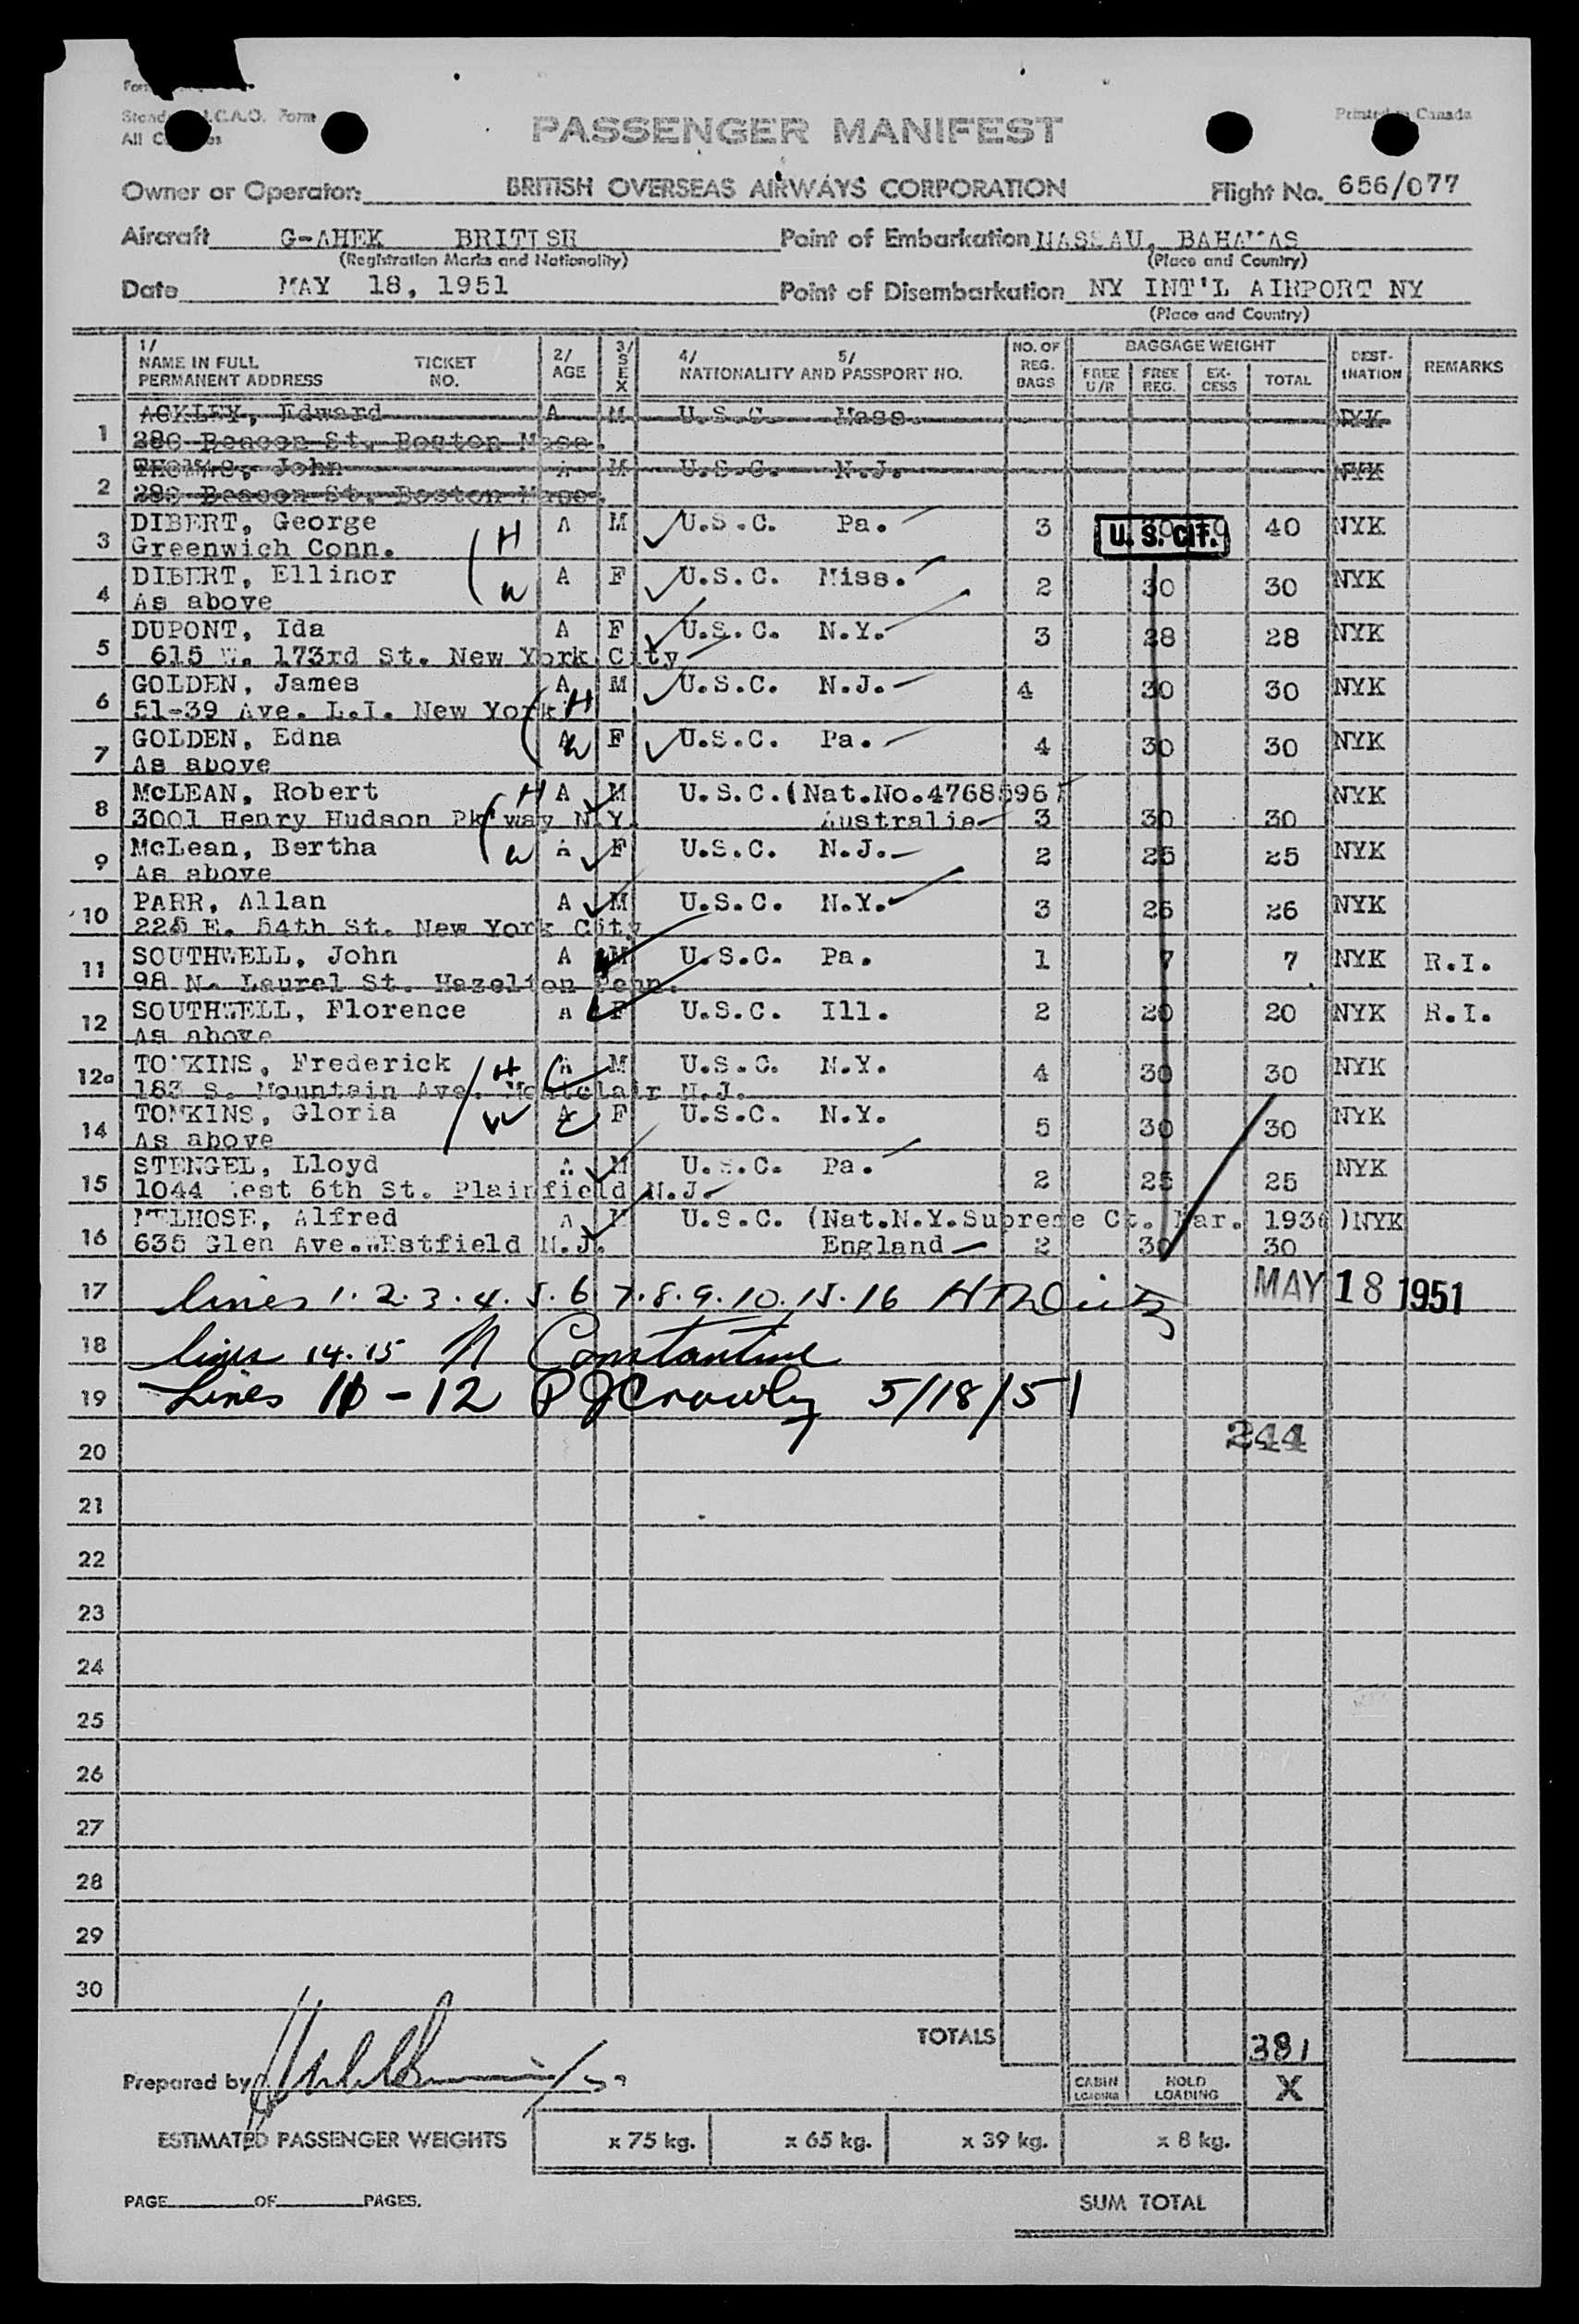 Printed in Canada
Form
All
PASSENGER MANIFEST
Owner or Operator: BRITISH OVERSEAS AIRWAYS CORPORATION Flight No. 656/077
Aircraft G-AHEK BRITISH Point of Embarkation NASSAU, BAHAMAS
(Registration Marks and Nationality) (Place and Country)
Date MAY 18, 1951 Point of Disembarkation NY INT'L AIRPORT NY
(Place and Country)
1/ NAME IN FULL PERMANENT ADDRESS TICKET NO. 2/ AGE 3/ SEX 4/ 5/ NATIONALITY AND PASSPORT NO. NO. OF REG. BAGS BAGGAGE WEIGHT FREE U/R FREE REG. EX-CESS TOTAL DEST-INATION REMARKS
1 ACKLEY, Edward A M U.S.C. Mass. NYK
280 Beacon St. Boston Mass.
2 THOMAS, John A M U.S.C. N.J. NYK
280 Beacon St. Boston Mass.
3 DIBERT, George H A M U.S.C. Pa. 3 U. S. CIT. 40 NYK
Greenwich Conn.
4 DIBERT, Ellinor W A F U.S.C. Miss. 2 30 30 NYK
As above
5 DUPONT, Ida A F U.S.C. N.Y. 3 28 28 NYK
615 W. 173rd St. New York City
6 GOLDEN, James H A M U.S.C. N.J. 4 30 30 NYK
51-39 Ave. L.I. New York
7 GOLDEN, Edna W A F U.S.C. Pa. 4 30 30 NYK
As above
8 McLEAN, Robert H A M U.S.C.(Nat.No.4768596) NYK
3001 Henry Hudson Pk'way N.Y. Australia 3 30 30
9 McLean, Bertha W A F U.S.C. N.J. 2 25 25 NYK
As above
10 PARR, Allan A M U.S.C. N.Y. 3 26 26 NYK
225 E. 54th St. New York City
11 SOUTHWELL, John A M U.S.C. Pa. 1 7 7 NYK R.I.
98 N. Laurel St. Hazelton Penn.
12 SOUTHWELL, Florence A F U.S.C. Ill. 2 20 20 NYK R.I.
As above
12a TOMKINS, Frederick H A M U.S.C. N.Y. 4 30 30 NYK
183 S. Mountain Ave. Montclair N.J.
14 TOMKINS, Gloria W A F U.S.C. N.Y. 5 30 30 NYK
As above
15 STENGEL, Lloyd A M U.S.C. Pa. 2 25 25 NYK
1044 West 6th St. Plainfield N.J.
16 MELHOSE, Alfred A M U.S.C. (Nat.N.Y.Supreme Ct. Mar. 1936)NYK
635 Glen Ave.WEstfield N.J. England 2 30 30
17 lines 1.2.3.4.5.6 7.8.9.10.15.16 MAY 18 1951
18 lines 14.15 Constantine
19 Lines 11-12 P J Crowley 5/18/51
20 244
21
22
23
24
25
26
27
28
29
30
TOTALS 381
Prepared by CABIN LOADING HOLD LOADING X
ESTIMATED PASSENGER WEIGHTS x 75 kg. x 65 kg. x 39 kg. x 8 kg.
PAGE OF PAGES. SUM TOTAL